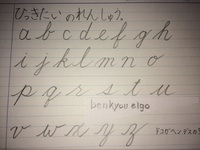 ひっきたいのれんしゅう。
a b c d e f g h
i j k l m n o
p q r s t u
benkyou eigo
v w x y z
ドコガヘンデスカ?